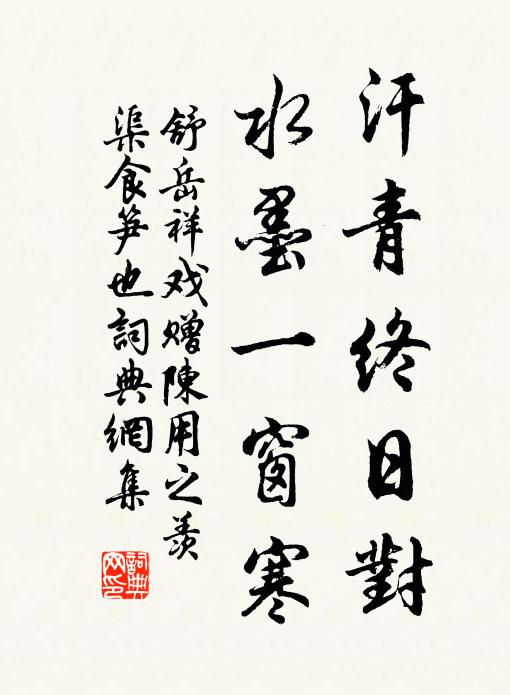 汗青終日對
水墨一窗寒
舒岳祥戏赠陳用之羨
渠食笋也詞典網集
詞典网印